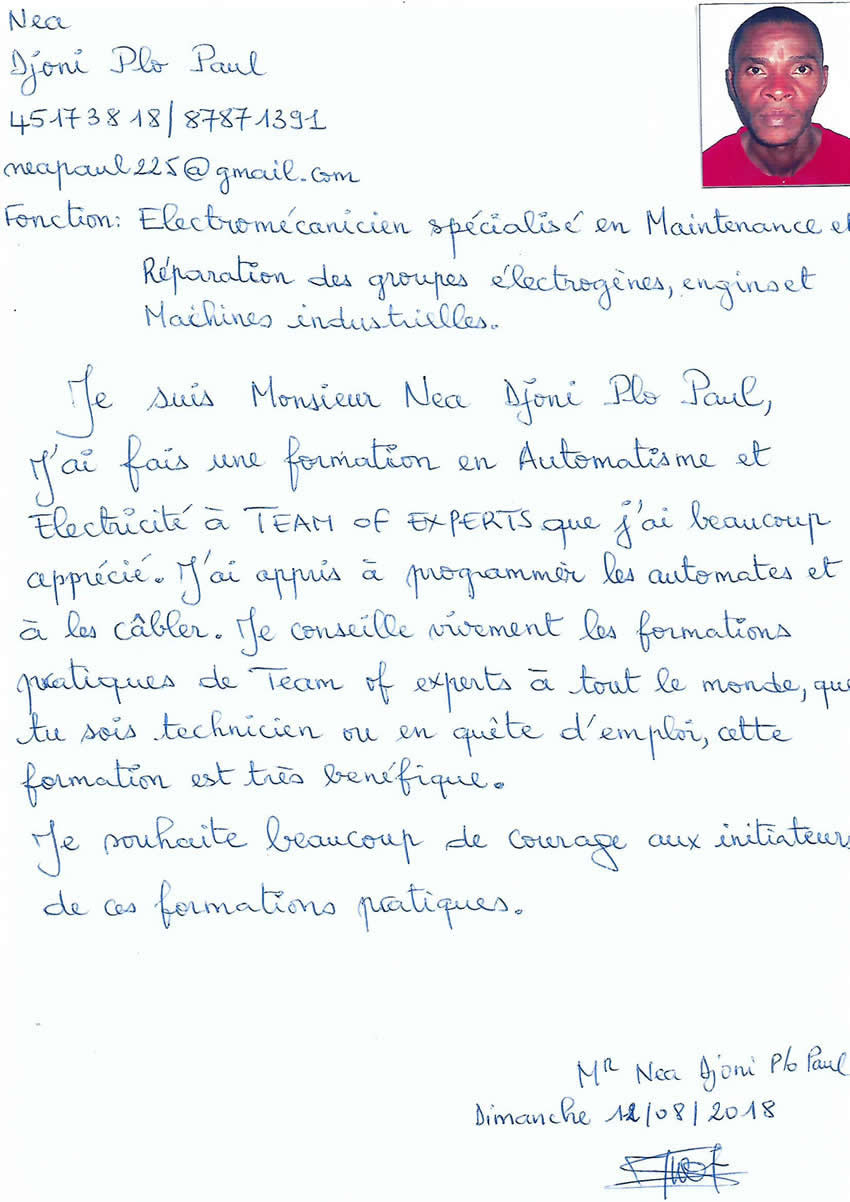 Nea
Djoni Plo Paul
45173818/87871391
neapaul225@gmail.com
Fonction: Electromécanicien spécialisé en Maintenance et
Réparation des groupes électrogènes, engins et
Machines industrielles.
Je suis Monsieur Nea Djoni Plo Paul,
J'ai fais une formation en Automatisme et
Electricité à TEAM OF EXPERTS que j'ai beaucoup
apprécié. J'ai appris à programmer les automates et
à les câbler. Je conseille vivement les formations
pratiques de Team of experts à tout le monde, que
tu sois technicien ou en quête d'emploi, cette
formation est très benéfique.
Je souhaite beaucoup de courage aux initiateurs
de ces formations pratiques.
MR Nea Djoni Plo Paul
Dimanche 12/08/2018